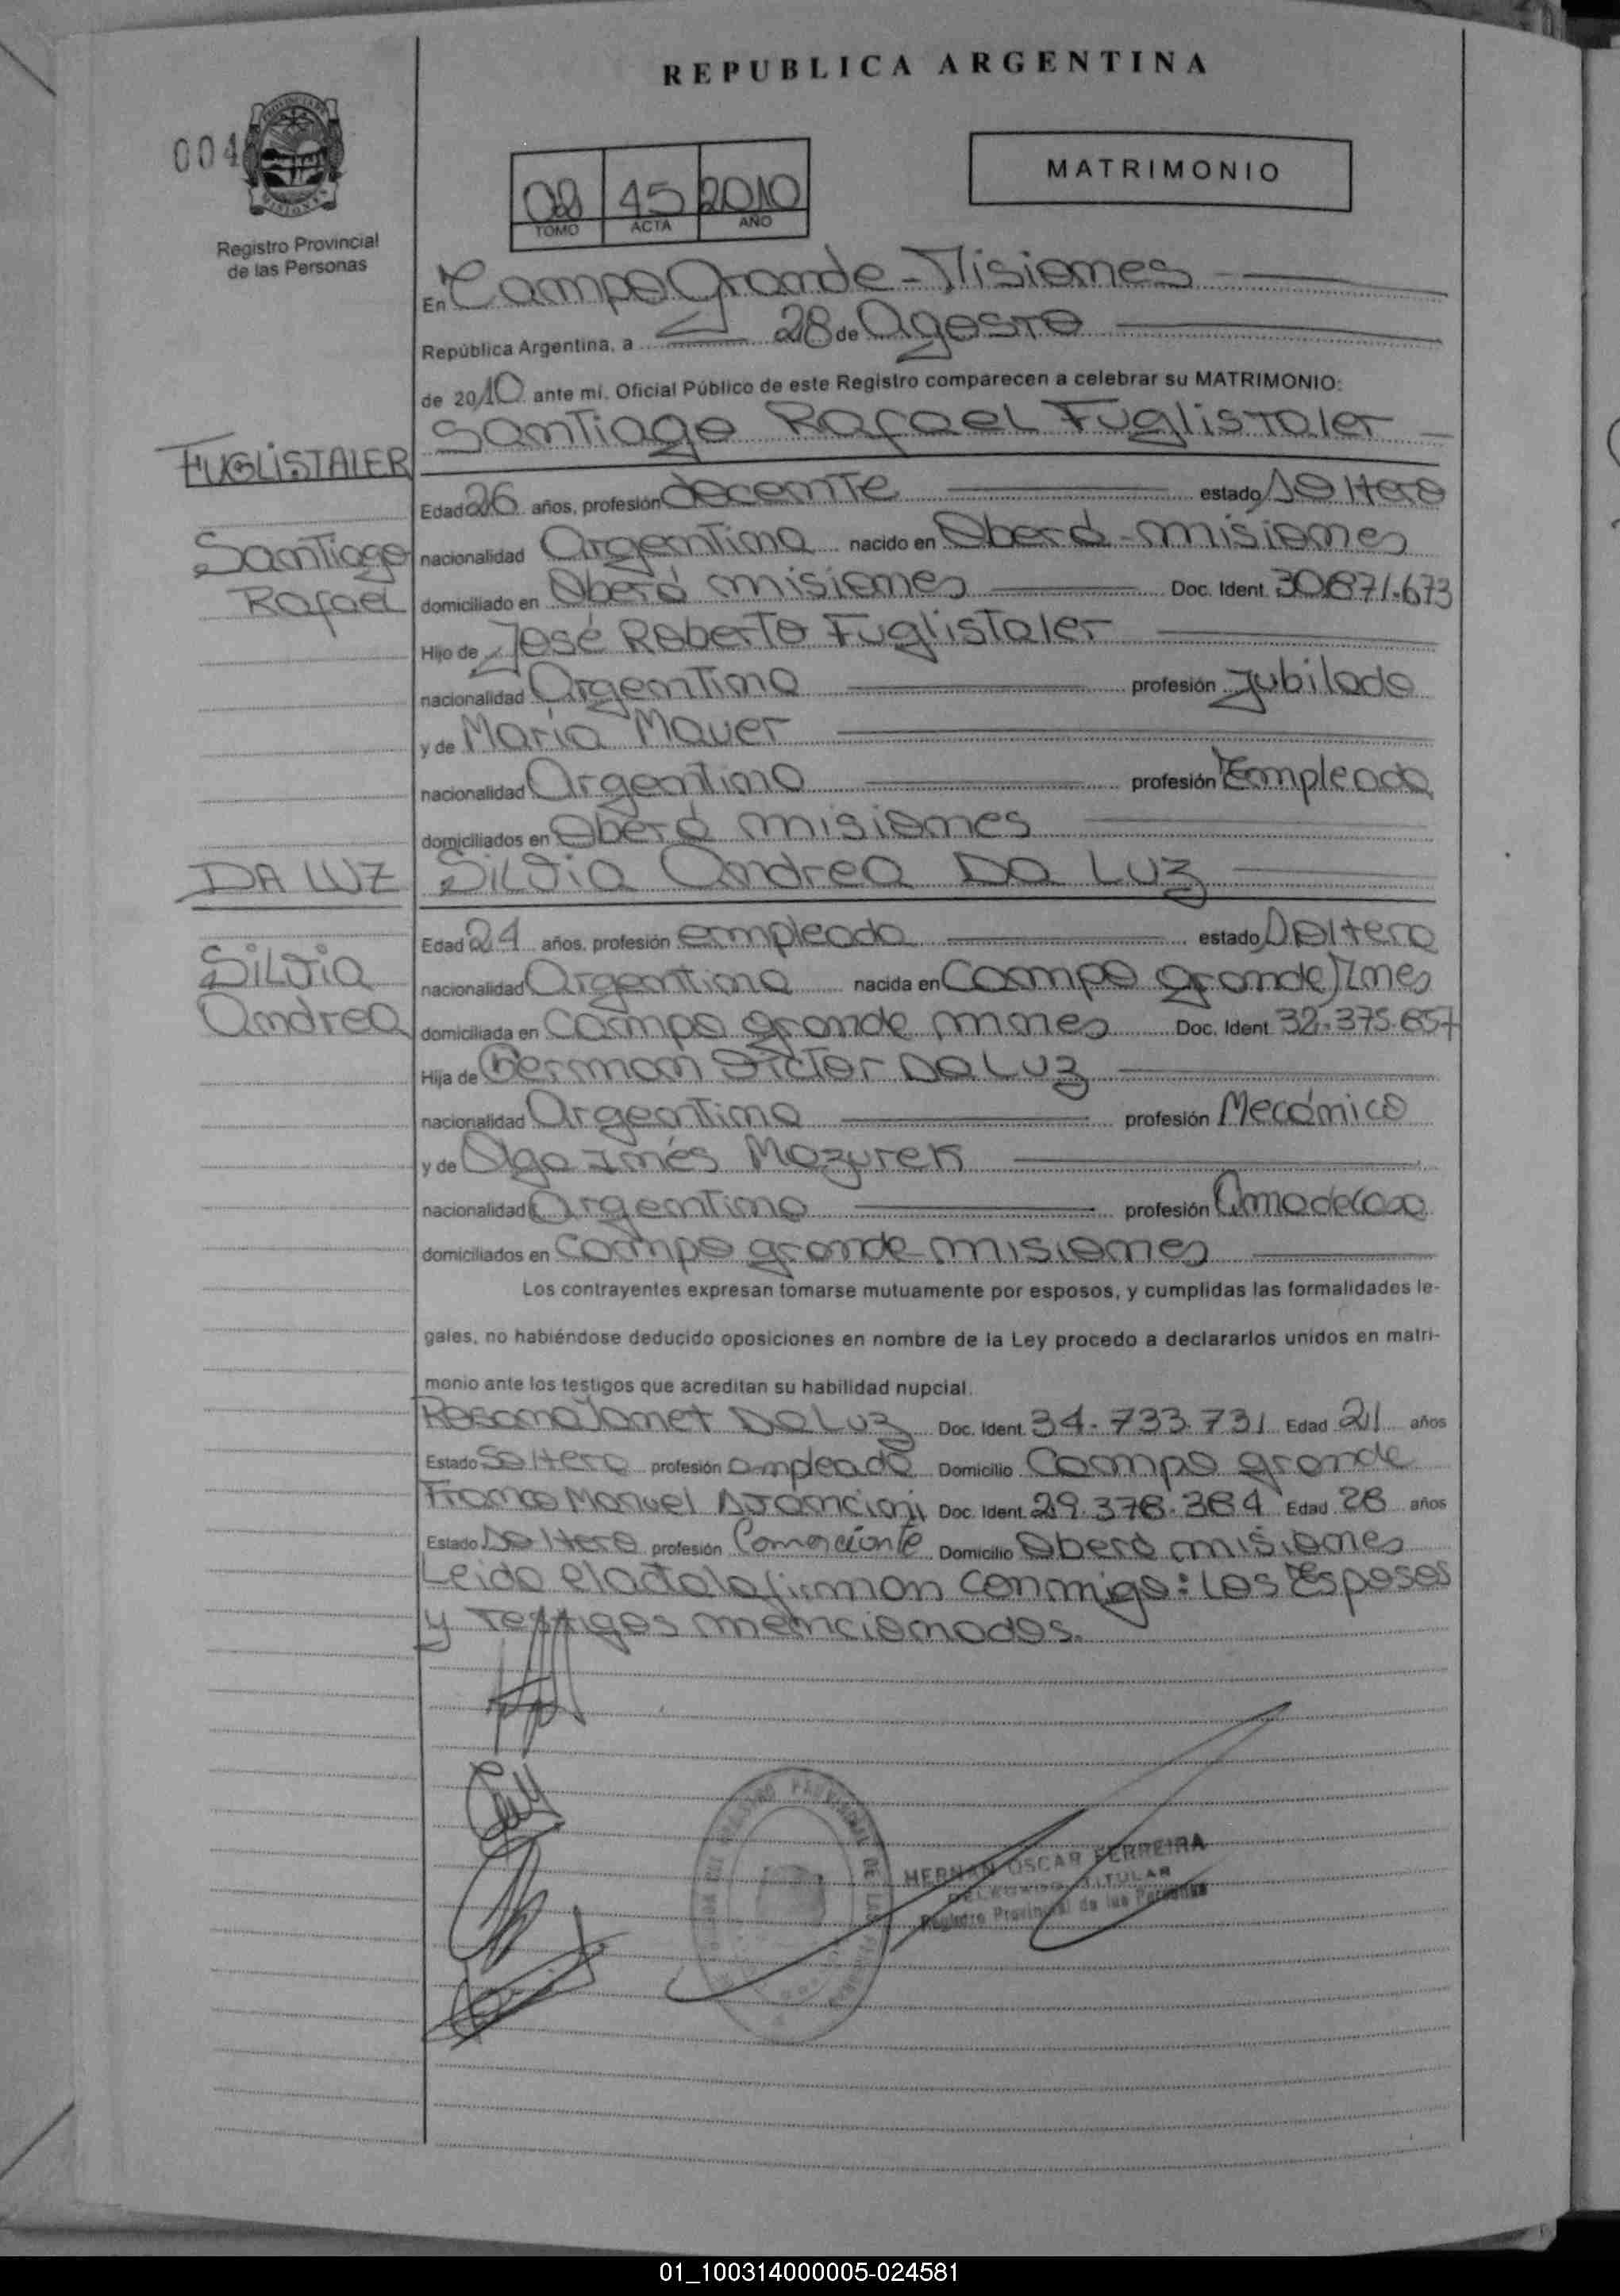 REPUBLICA ARGENTINA
004
MATRIMONIO
02 45 2010
TOMO ACTA AÑO
Registro Provincial
de las Personas
En Campo Grande - Misiones
República Argentina, a 28 de Agosto
de 2010 ante mí. Oficial Público de este Registro comparecen a celebrar su MATRIMONIO:
Santiago Rafael Fuglistaler
FUGLISTALER
Edad 26 años, profesión docente estado Soltero
Santiago
nacionalidad Argentina nacido en Oberá - misiones
Rafael
domiciliado en Oberá misiones Doc. Ident. 30.871.673
Hijo de José Roberto Fuglistaler
nacionalidad Argentina profesión Jubilado
y de María Mauer
nacionalidad Argentina profesión Empleada
domiciliados en Oberá misiones
DA LUZ
Silvia Andrea Da Luz
Edad 24 años, profesión empleada estado Soltera
Silvia
nacionalidad Argentina nacida en Campo grande Mnes
Andrea
domiciliada en Campo grande mnes Doc. Ident. 32.375.857
Hija de German Victor Da Luz
nacionalidad Argentina profesión Mecánico
y de Olga Inés Mazurek
nacionalidad Argentina profesión Ama de casa
domiciliados en Campo grande misiones
Los contrayentes expresan tomarse mutuamente por esposos, y cumplidas las formalidades le-
gales, no habiéndose deducido oposiciones en nombre de la Ley procedo a declararlos unidos en matri-
monio ante los testigos que acreditan su habilidad nupcial.
Rosana Yanet Da Luz Doc. Ident. 34.733.731 Edad 21 años
Estado Soltera profesión empleada Domicilio Campo grande
Franco Manuel Doc. Ident. 29.378.384 Edad 28 años
Estado Soltero profesión Comerciante Domicilio Oberá misiones
Leida el acta la firman conmigo: los Esposos
y Testigos mencionados.
HERNAN OSCAR FERREIRA
DELEGADO TITULAR
Registro Provincial de las Personas
01_100314000005-024581